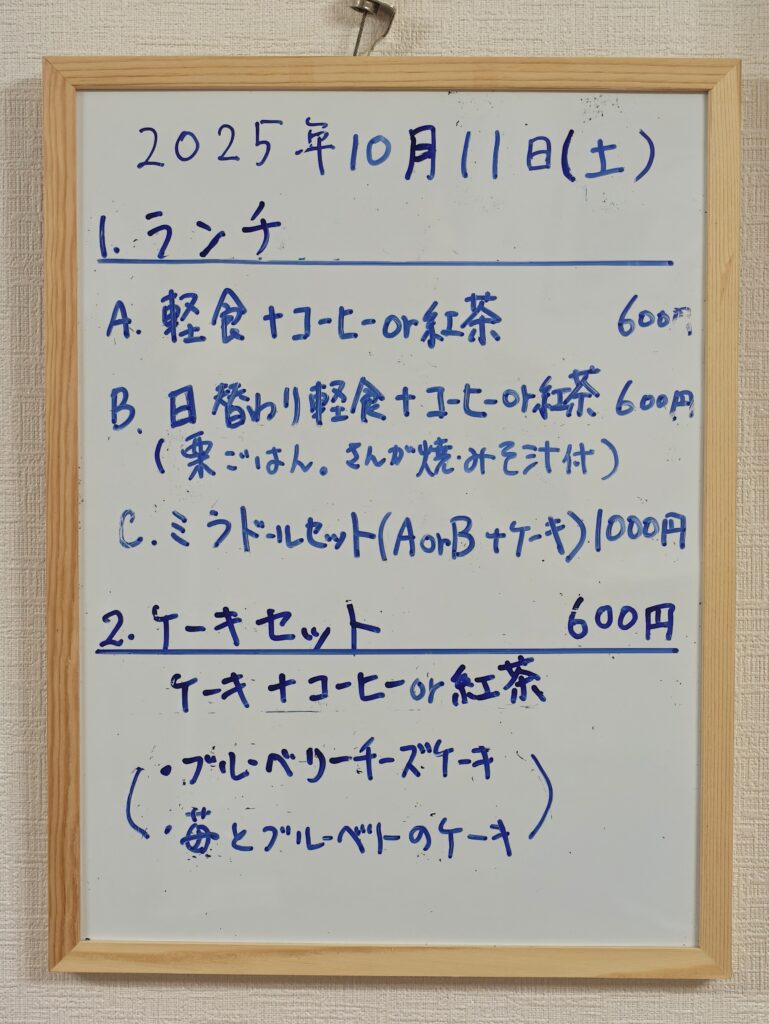 2025年10月11日(土)
1. ランチ
A. 軽食+コーヒーor紅茶 600円
B. 日替わり軽食+コーヒーor紅茶 600円
(栗ごはん。さんが焼・みそ汁付)
C. ミラドールセット(AorB+ケーキ)1000円
2. ケーキセット 600円
ケーキ+コーヒーor紅茶
・ブルーベリーチーズケーキ
・苺とブルーベリーのケーキ